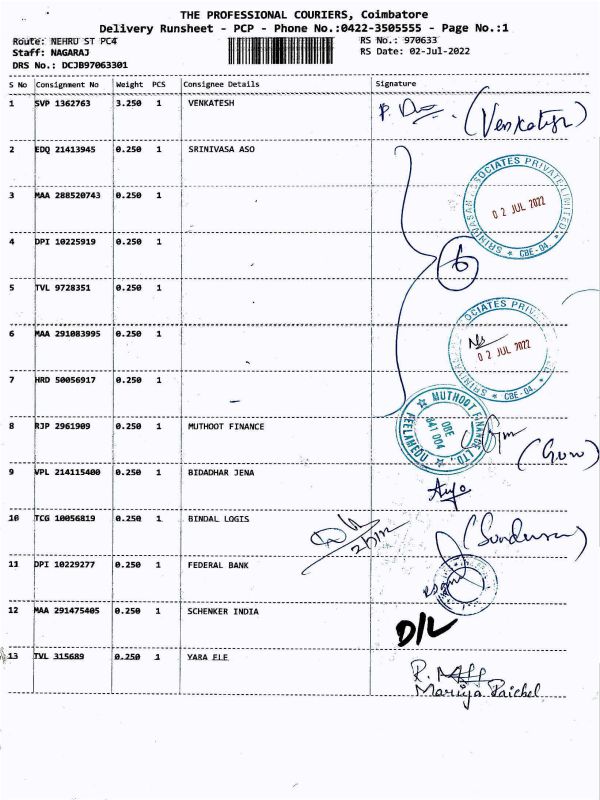 THE PROFESSIONAL COURIERS, Coimbatore
Delivery Runsheet - PCP - Phone No.:0422-3505555 - Page No.:1
Route: NEHRU ST PC4 RS No.: 970633
Staff: NAGARAJ RS Date: 02-Jul-2022
DRS No.: DCJB97063301
S No Consignment No Weight PCS Consignee Details Signature
1 SVP 1362763 3.250 1 VENKATESH (Venkatesh)
2 EDQ 21413945 0.250 1 SRINIVASA ASO
SRINIVASAN ASSOCIATES PRIVATE LIMITED * CBE - 04. *
02 JUL 2022
3 MAA 288520743 0.250 1
4 DPI 10225919 0.250 1
6
5 TVL 9728351 0.250 1
SOCIATES PRIV
02 JUL 2022
SRINIVASAN * CBE - 04. *
6 MAA 291083995 0.250 1
7 HRD 50056917 0.250 1
8 RJP 2961909 0.250 1 MUTHOOT FINANCE
MUTHOOT FINANCE LTD., PEELAMEDU
CBE
641 004
9 VPL 214115400 0.250 1 BIDADHAR JENA
10 TCG 10056819 0.250 1 BINDAL LOGIS
11 DPI 10229277 0.250 1 FEDERAL BANK
12 MAA 291475405 0.250 1 SCHENKER INDIA D/L
13 TVL 315689 0.250 1 YARA ELE R.